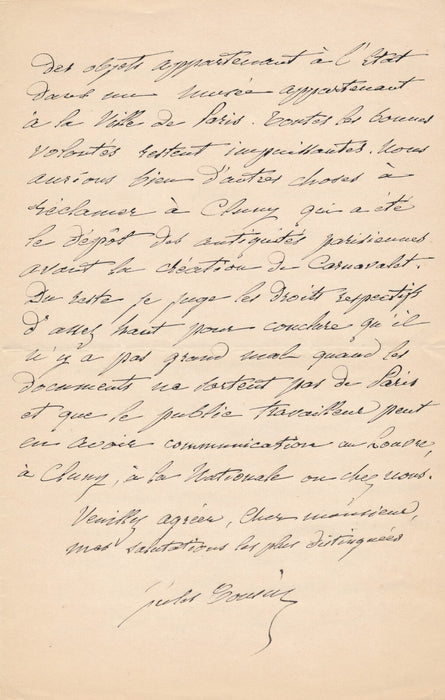 des objets appartenant à l'Etat
dans un musée appartenant
à la Ville de Paris. Toutes les bonnes
volontés restent impuissantes. Nous
aurions bien d'autres choses à
réclamer à Cluny qui a été
le dépôt des antiquités parisiennes
avant la création de Carnavalet.
Du reste je juge les droits respectifs
d'assez haut pour conclure qu'il
n'y a pas grand mal quand les
documents ne sortent pas de Paris
et que le public travailleur peut
en avoir communication au Louvre,
à Cluny, à la Nationale ou chez nous.
Veuillez agréer, cher monsieur,
mes salutations les plus distinguées
Jules Cousin